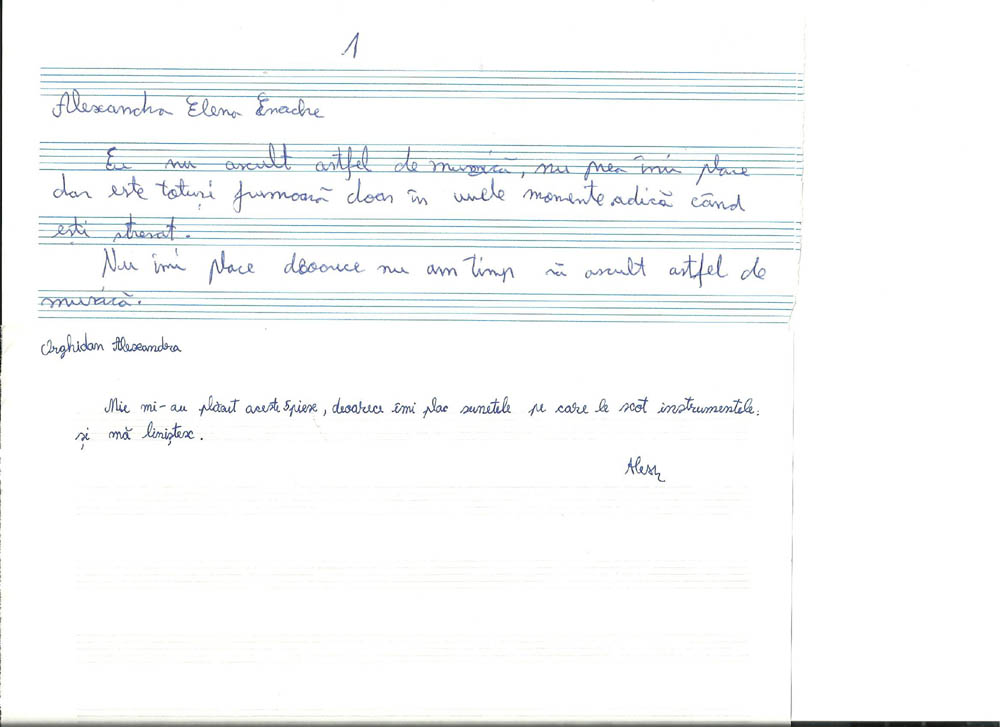 1
Alexandra Elena Enache
Eu nu ascult astfel de muzică, nu prea îmi place
dar este totuși frumoasă doar în unele momente adică când
ești stresat.
Nu îmi place deoarece nu am timp să ascult astfel de
muzică.
Arghidan Alexandra
Mie mi-au plăcut aceste 5 piese, deoarece îmi plac sunetele pe care le scot instrumentele,
și mă liniștesc.
Alex